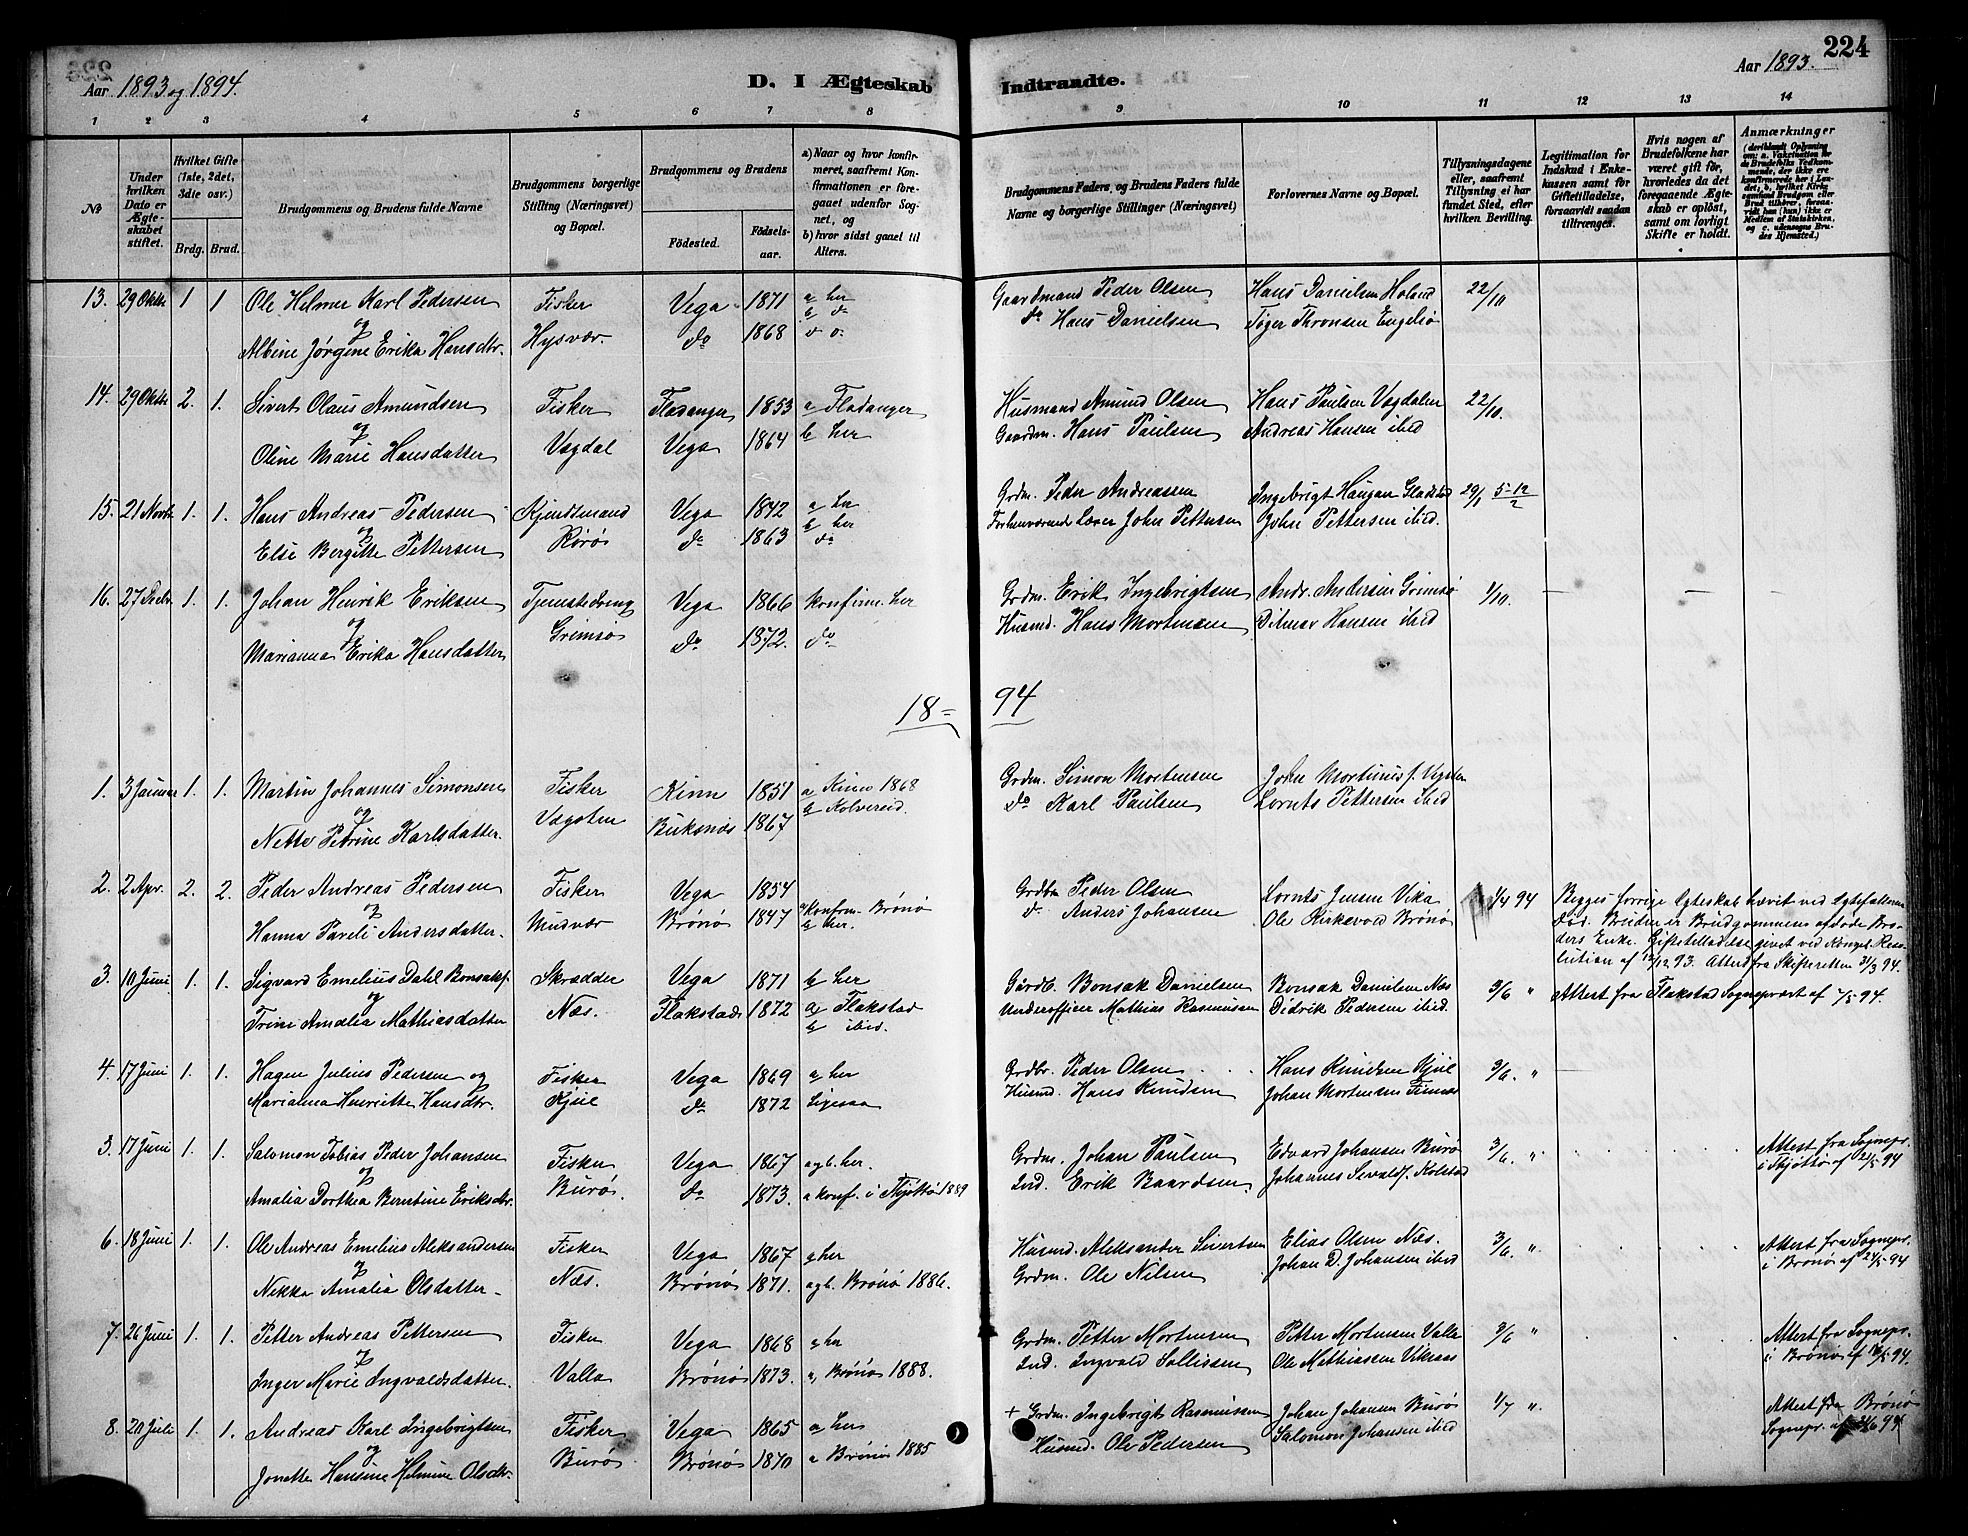 224
Aar 1893 og 1894.
D. I Ægteskab Indtraadte.
Aar 1893.
1 2 3 4 5 6 7 8 9 10 11 12 13 14
No
Under hvilken Dato er Ægteskabet stiftet.
Hvilket Gifte (1ste, 2det, 3die osv.)
Brdg. Brud.
Brudgommens og Brudens fulde Navne
Brudgommens borgerlige Stilling (Næringsvei) og Bopæl.
Brudgommens og Brudens
Fødested. Fødselsaar.
a) Naar og hvor konfirmeret, saafremt Konfirmationen er foregaaet udenfor Sognet, og
b) hvor sidst gaaet til Alters.
Brudgommens Faders, og Brudens Faders fulde Navne og borgerlige Stillinger (Næringsvei)
Forlovernes Navne og Bopæl.
Tillysningsdagene eller, saafremt Tillysning ei har fundet Sted, efter hvilken Bevilling.
Legitimation for Indskud i Enkekassen samt for Giftetilladelse, forsaavidt saadan tiltrænges.
Hvis nogen af Brudefolkene har været gift før, hvorledes da det foregaaende Ægteskab er opløst, samt om lovligt Skifte er holdt.
Anmærkninger
13. 29 Oktbr 1 1 Ole Helmer Karl Pedersen Fisker Vega 1871 a her Gaardmand Peder Olsen Hans Danielsen Holand 22/10
og b do do Hans Danielsen Tøger Thronsen Engelsø
Albine Jørgine Erika Hansdtr. Hysvær do 1868 d o.
14. 29 Oktbr 2. 1. Sivert Olaus Amundsen Fisker Fladanger 1853 a Fladanger Husmand Amund Olsen Hans Paulsen Vagdalen 22/10.
og b her Gaardm. Hans Paulsen Andreas Hansen ibid
Oline Marie Hansdatter Vagdal Vega 1864
15. 21 Novbr 1. 1. Hans Andreas Pedersen Kjendtmand Vega 1842 a her Grdm. Peder Andreassen Ingebrigt Haugan Gladstad 29/1 5-12/2
og b her Forhenværende Lærer John Pettersen John Pettersen ibid.
Else Bergitte Pettersen Rørø do 1863 do
16. 27 Decbr 1. 1. Johan Henrik Eriksen Tjenestedreng Vega 1866 konfirm. her Grdm. Erik Ingebrigtsen Andr. Andersen Grimsø 1/10. — — —
og Grimsø Husmd. Hans Mortensen Ditmar Hansen ibid
Marianna Erika Hansdatter do 1872. do
18= 94
1. 3 Januar 1. 1. Martin Johannes Simonsen Fisker Kinn 1851 a Kinn 1868 Grdm. Simon Mortensen John Mortinusf. Vegsten
og Vegsten b Kolvereid. do Karl Paulsen Lornts Pettersen ibid
Nette Petrine Karlsdatter. Buksnæs 1867
2. 2 Apr. 2. 2. Peder Andreas Pedersen Fisker Vega 1854 Grdbr Peder Olsen Lornts Jensen Vika 1/4 94 Begges forrige Egteskab hævet ved Egtefællernes
og a konfirm. Brønø do Anders Johansen Ole Kirkevold Brønø Død. Bruden er Brudgommens afdøde Bro-
Hanna Pareli Andersdatter. Mudvær Brønø 1847 b her. ders Enke. Giftetilladelse givet ved Kongel. Reso-
lution af 12/12 93. Attest fra Skifteretten 31/3 94.
3. 10 Juni 1. 1. Sigvard Emelius Dahl Bonsakf. Skrædder Vega 1871 b her Gårdb. Bonsak Danielsen Bonsak Danielsen Næs 3/6 " Attest fra Flakstad Sognepræst af 7/5 94.
og Underofficer Mathias Rasmussen Didrik Pedersen ibid.
Trine Amalia Mathiasdatter Næs. Flakstad 1872 a Flakstad
b ibid.
4. 17 Juni 1. 1. Hagen Julius Pedersen og Fisker Vega 1869 a her Grdbr. Peder Olsen Hans Knudsen Kjul 3/6. "
Marianna Henriette Hansdtr. Kjul do 1872 Ligesaa Husmd. Hans Knudsen Johan Mortensen
3. 17 Juni 1. 1. Salomon Tobias Peder Johansen Fisker Vega 1867 a g b. her. Grdm. Johan Paulsen Edvard Johansen Burø 3/6. " Attest fra Sognepr.
og i Tjøttø af 21/5 94
Amalia Dorthea Berntine Eriksdtr. Burø. do 1873. a konf. i Tjøttø 1889 Ind. Erik Baardsen Johannes Sivaldf. Kolstad
6. 18 Juni 1. 1. Ole Andreas Emelius Aleksandersen Fisker Vega 1867 a her Husmd. Aleksander Sivertsen Elias Olsen Næs. 3/6. " Attest fra Sognepr.
og Grdm. Ole Nilsen Johan D. Johansen ibid i Brønø af 24/5 94
Nekka Amalia Olsdatter Næs. Brønø 1871. a g b. Brønø 1886.
7. 26 Juni 1. 1. Petter Andreas Pettersen Fisker Vega 1868 a her Grdm. Petter Mortensen Petter Mortensen Valla 3/6 " Attest fra Sognepr.
og Ind. Ingvald Sollissen Ole Mathiassen Vikaas i Brønø af 16/5 94.
Inger Marie Ingvaldsdatter. Valla Brønø 1873. a, Brønø 1888.
8. 20 Juli 1. 1. Andreas Karl Ingebrigtsen Fisker Vega 1865 a her + Grdm. Ingebrigt Rasmussen Johan Johansen Burø 1/7 ". Attest fra Brønø
og Husmd. Ole Pedersen Salomon Johansen ibid Sognepr. af 94
Jonette Hansine Helmine Olsdtr. Burø Brønø 1870 a Brønø 1885